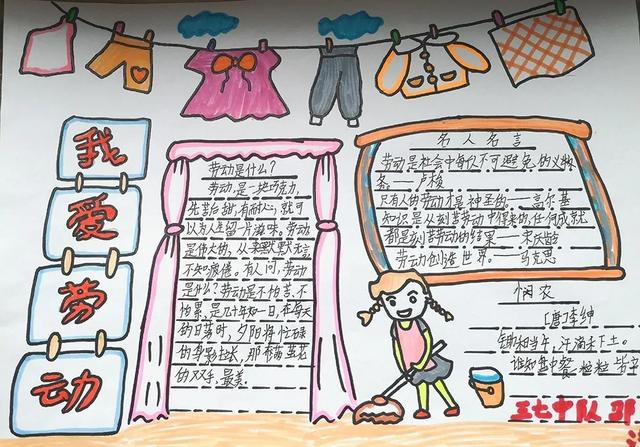 我
爱
劳
动
劳动是什么?
劳动,是一块巧克力,
先苦后甜,有耐心,就可
以为人生留一片滋味。劳动
是伟大的,从来默默无言
不知疲倦。有人问,劳动
是什么?劳动是不怕苦、不
怕累,是几十年如一日,在每天
的日落时,夕阳将忙碌
的身影拉长,那布满茧花
的双手,最美.
名人名言
劳动是社会中每个人不可避免的义务
务——卢梭
只有人的劳动才是神圣的——高尔基
知识是从刻苦劳动中得来的,任何成就
都是刻苦劳动的结果——宋庆龄
劳动创造世界。——马克思
悯农
[唐]李绅
锄禾日当午,汗滴禾下土。
谁知盘中餐,粒粒皆辛
三七中队